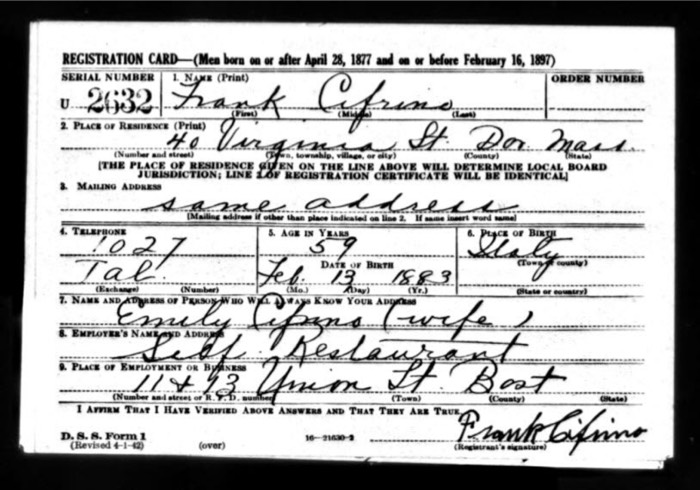 REGISTRATION CARD—(Men born on or after April 28, 1877 and on or before February 16, 1897)
SERIAL NUMBER 1. NAME (Print) ORDER NUMBER
U 2632 Frank Cifrino
(First) (Middle) (Last)
2. PLACE OF RESIDENCE (Print)
40 Virginia St. Dor. Mass.
(Number and street) (Town, township, village, or city) (County) (State)
[THE PLACE OF RESIDENCE GIVEN ON THE LINE ABOVE WILL DETERMINE LOCAL BOARD
JURISDICTION; LINE 2 OF REGISTRATION CERTIFICATE WILL BE IDENTICAL]
3. MAILING ADDRESS
same address
[Mailing address if other than place indicated on line 2. If same insert word same]
4. TELEPHONE 5. AGE IN YEARS 6. PLACE OF BIRTH
1027 59 Italy
DATE OF BIRTH (Town or county)
Tal Feb. 13 1883
(Exchange) (Number) (Mo.) (Day) (Yr.) (State or country)
7. NAME AND ADDRESS OF PERSON WHO WILL ALWAYS KNOW YOUR ADDRESS
Emily Cifrino (wife)
8. EMPLOYER'S NAME AND ADDRESS
Self Restaurant
9. PLACE OF EMPLOYMENT OR BUSINESS
11 & 13 Union St. Bost
(Number and street or R. F. D. number) (Town) (County) (State)
I AFFIRM THAT I HAVE VERIFIED ABOVE ANSWERS AND THAT THEY ARE TRUE.
Frank Cifrino
D. S. S. Form 1
(Revised 4-1-42) (over) 16—21630-2 (Registrant's signature)